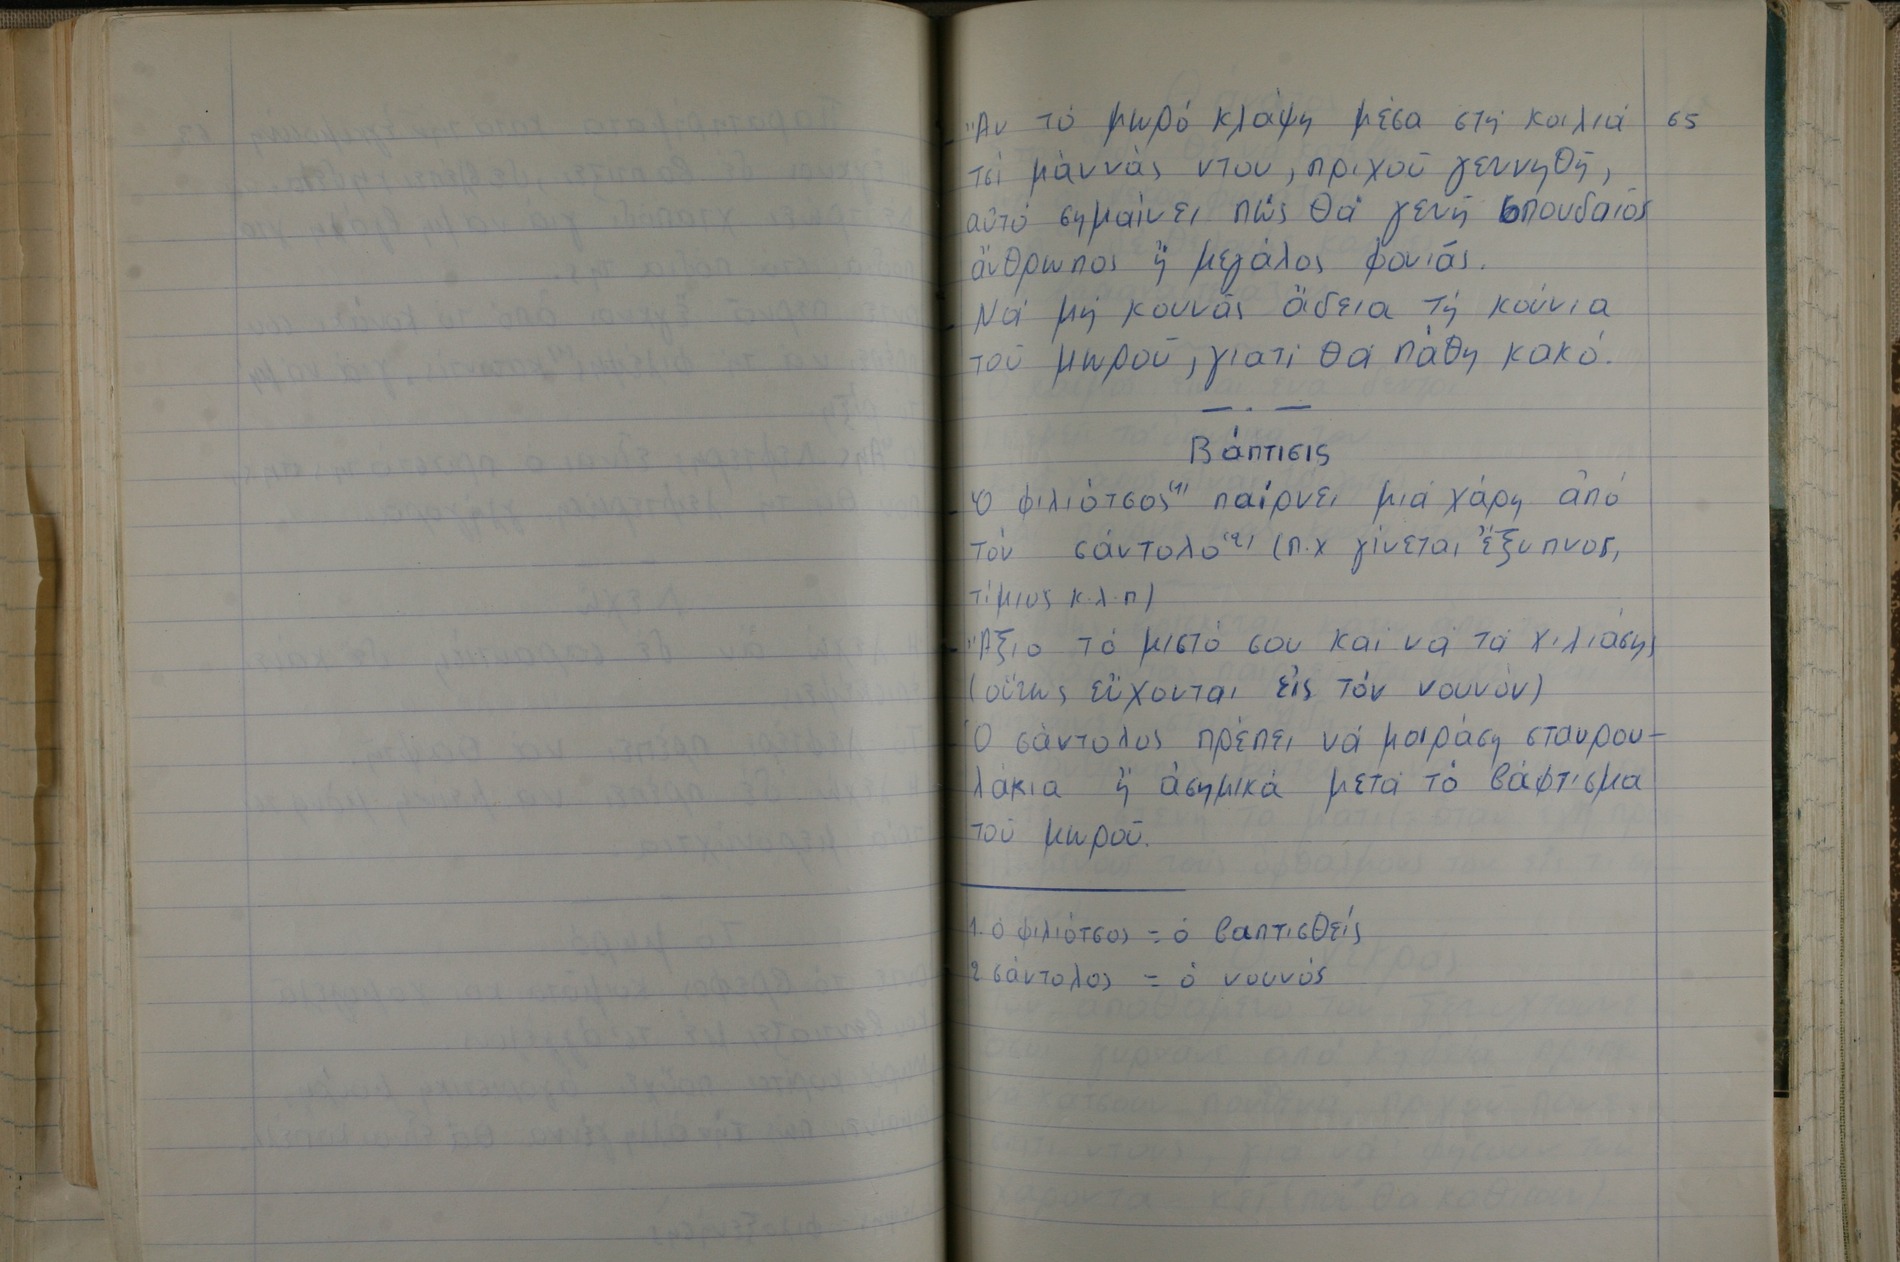 Ἄν τό μωρό κλάψη μέσα στή κοιλιά 65
τσί μάννάς ντου, πριχοῦ γεννηθῆ,
αὐτό σημαίνει πώς θά γενῆ σπουδαῖος
ἄνθρωπος ἤ μεγάλος φονιᾶς.
Νά μή κουνᾶς ἄδεια τή κούνια
τοῦ μωροῦ, γιατί θά πάθη κακό.
— . —
Βάπτισις
Ὁ φιλιότσος(1) παίρνει μιά χάρη ἀπό
τόν σάντολο(2) (π.χ γίνεται ἔξυπνος,
τίμιος κ.λ.π)
Ἄξιο τό μιστό σου καί νά τά χιλιάσης
(οὕτως εὔχονται εἰς τόν νουνόν)
Ὁ σάντολος πρέπει νά μοιράση σταυρου-
λάκια ἤ ἀσημικά μετά τό βάφτισμα
τοῦ μωροῦ.
1. ὁ φιλιότσος = ὁ βαπτισθείς
2 σάντολος = ὁ νουνός